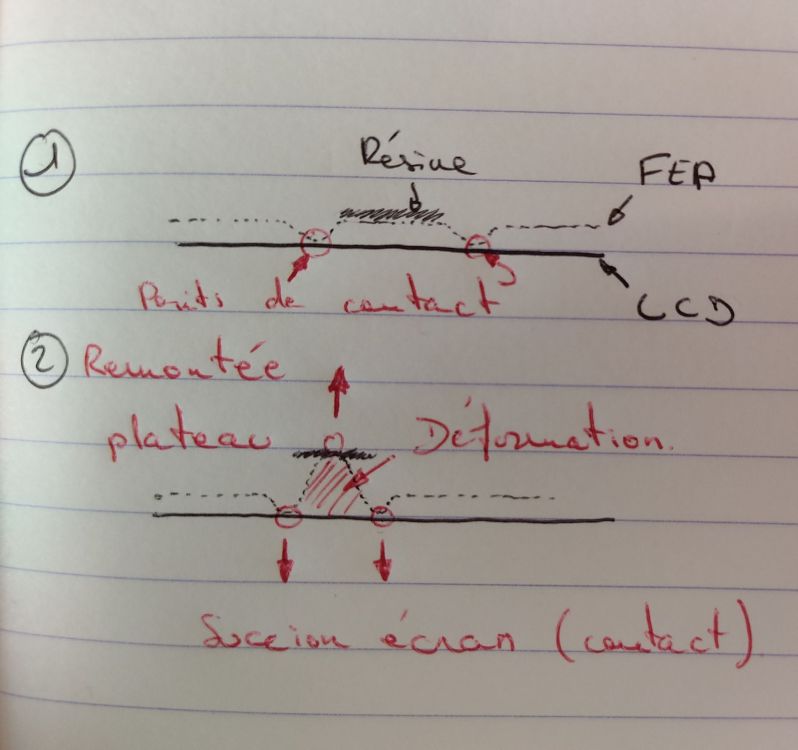 1
Résine
FEP
Points de contact
LCD
2 Remontée
plateau Déformation.
Succion écran (contact)